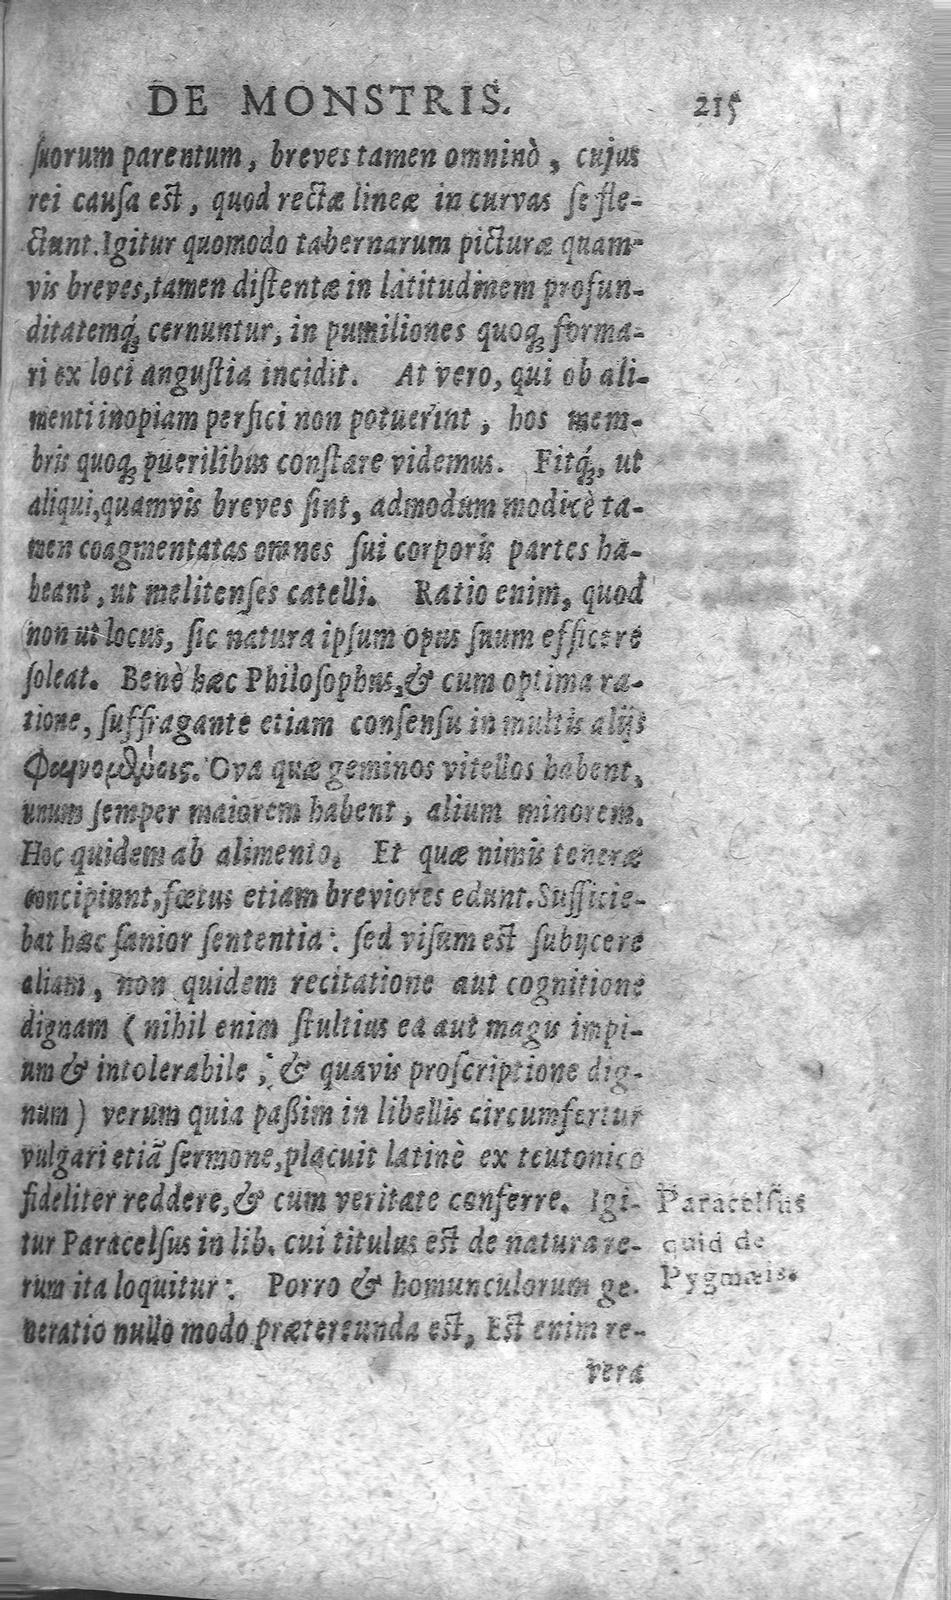 DE MONSTRIS. 215
ſuorum parentum, breves tamen omninò, cujus
rei cauſa est, quod rectæ lineæ in curvas ſe fle-
ctunt. Igitur quomodo tabernarum picturæ quam-
vis breves, tamen diſtentæ in latitudinem profun-
ditatemq́;, cernuntur, in pumiliones quoq; forma-
ri ex loci anguſtia incidit. At vero, qui ob ali-
menti inopiam perfici non potuerint, hos mem-
bris quoq; puerilibus conſtare videmus. Fitq́;, ut
aliqui, quamvis breves ſint, admodum modicè ta-
men coagmentatas omnes ſui corporis partes ha-
beant, ut melitenſes catelli. Ratio enim, quod
non ut locus, ſic natura ipſum opus ſuum efficere
ſoleat. Benè hæc Philoſophus, & cum optima ra-
tione, ſuffragante etiam conſenſu in multis alijs
Ova quæ geminos vitellos habent,
unum ſemper maiorem habent, alium minorem.
Hoc quidem ab alimento. Et quæ nimis teneræ
concipiunt, fœtus etiam breviores edunt. Sufficie-
bat hæc ſanior ſententia: ſed viſum est ſubijcere
aliam, non quidem recitatione aut cognitione
dignam (nihil enim ſtultius ea aut magis impi-
um & intolerabile, & quavis proſcriptione dig-
num) verum quia paßim in libellis circumfertur
vulgari etiā ſermone, placuit latinè ex teutonico
fideliter reddere, & cum veritate conferre. Igi-
tur Paracelſus in lib. cui titulus est de natura re-
rum ita loquitur: Porro & homunculorum ge-
neratio nullo modo prætereunda est, Est enim re-
vera
Paracelſus
quid de
Pygmæis.